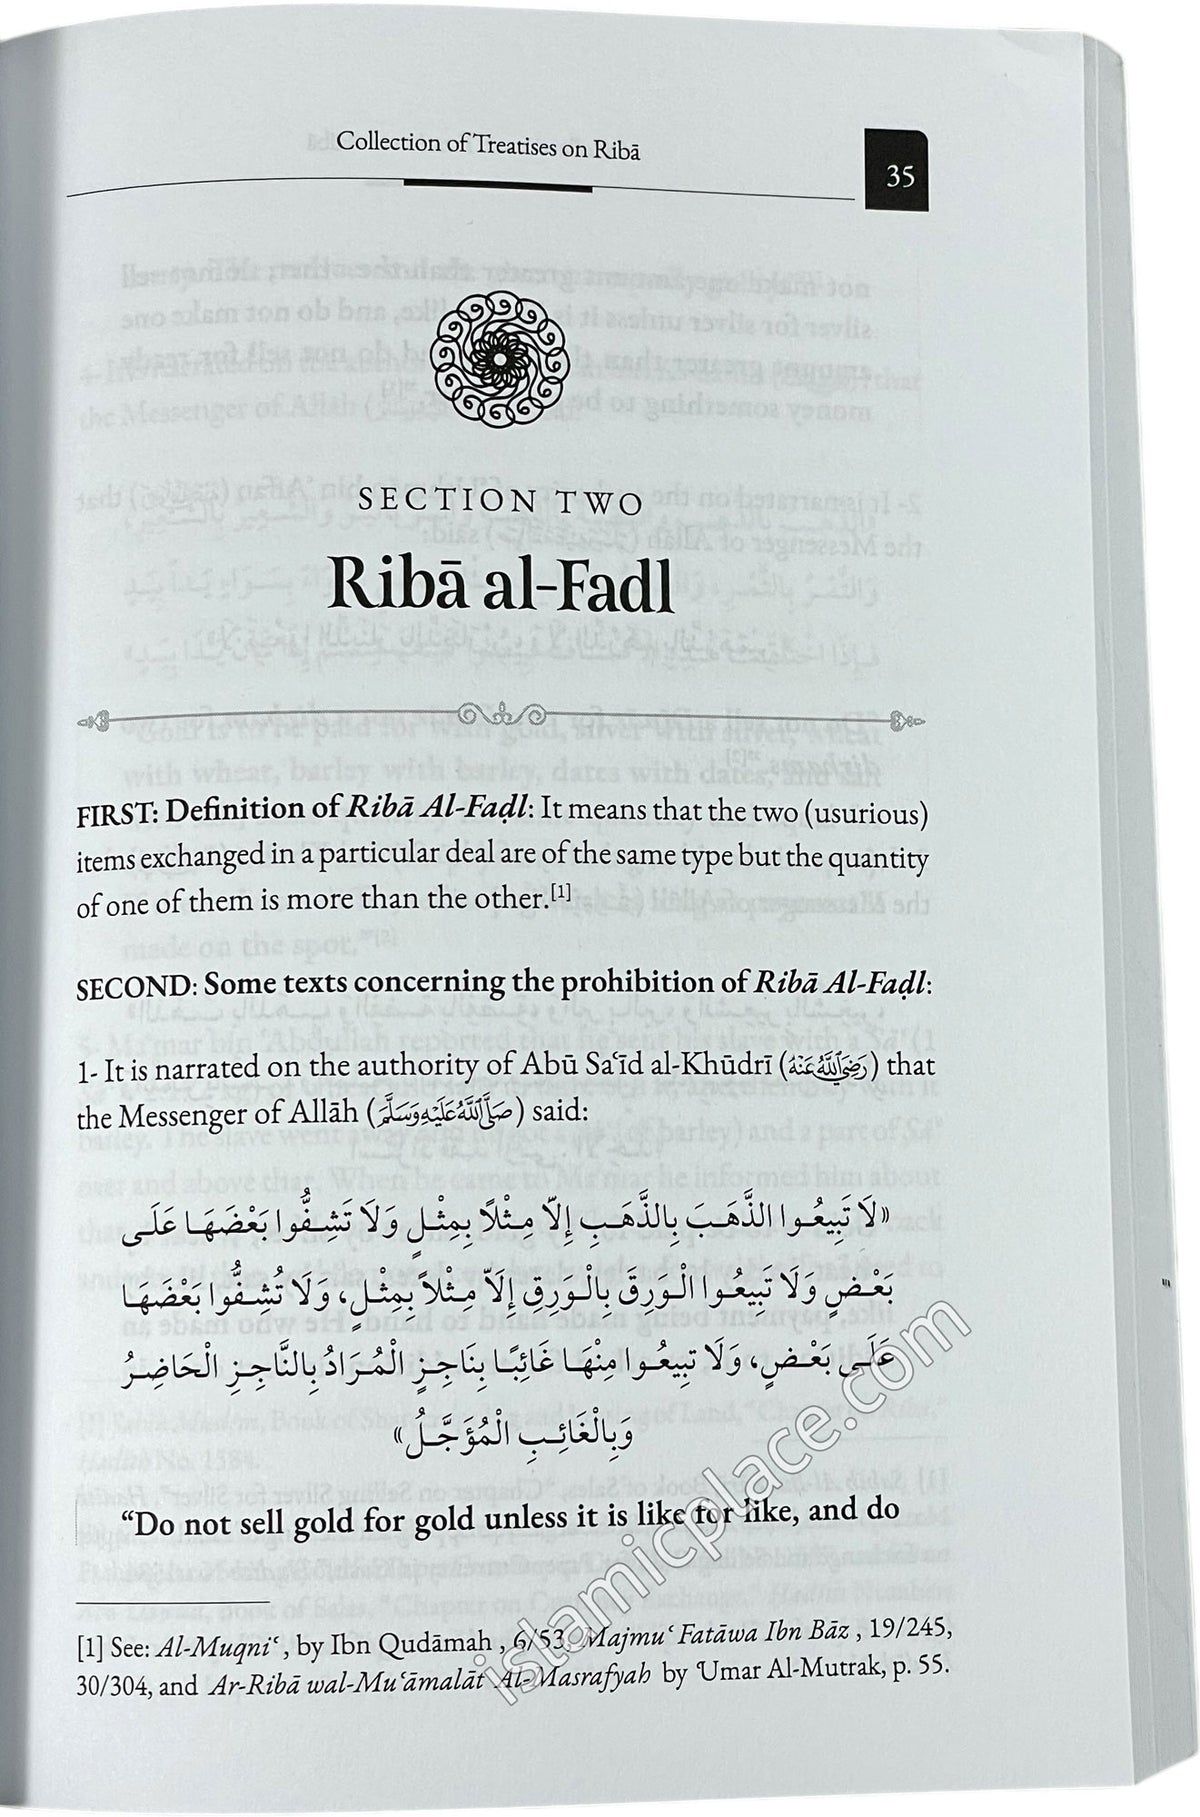 Collection of Treatises on Ribā
35
SECTION TWO
Ribā al-Fadl
FIRST: Definition of Ribā Al-Faḍl: It means that the two (usurious)
items exchanged in a particular deal are of the same type but the quantity
of one of them is more than the other.[1]
SECOND: Some texts concerning the prohibition of Ribā Al-Faḍl:
1- It is narrated on the authority of Abū Saʿīd al-Khūdrī (رَضِيَ اللَّهُ عَنْهُ) that
the Messenger of Allāh (صَلَّى اللَّهُ عَلَيْهِ وَسَلَّمَ) said:
«لَا تَبِيعُوا الذَّهَبَ بِالذَّهَبِ إِلاّ مِثْلاً بِمِثْلٍ وَلَا تَشِفُّوا بَعْضَهَا عَلَى
بَعْضٍ وَلَا تَبِيعُوا الْوَرِقَ بِالْوَرِقِ إِلاّ مِثْلاً بِمِثْلٍ، وَلَا تُشِفُّوا بَعْضَهَا
عَلَى بَعْضٍ، وَلَا تبِيعُوا مِنْهَا غَائِبًا بِنَاجِزٍ الْمُرَادُ بِالنَّاجِزِ الْحَاضِرُ
وَبِالْغَائِبِ الْمُؤَجَّلُ»
“Do not sell gold for gold unless it is like for like, and do
[1] See: Al-Muqniʿ, by Ibn Qudāmah , 6/53, Majmuʿ Fatāwa Ibn Bāz , 19/245,
30/304, and Ar-Ribā wal-Muʿāmalāt Al-Masrafyah by ʿUmar Al-Mutrak, p. 55.
islamicplace.com